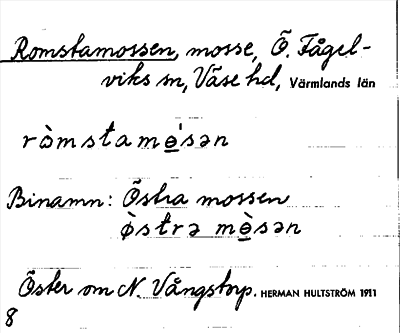 Romstamossen, mosse, Ö. Fågel-
viks sn, Väse hd, Värmlands län
ròmstamo̱̍sən
Binamn: Östra mossen
ø̀strə mò̱sən
Öster om N. Vångstorp. HERMAN HULTSTRÖM 1911
8